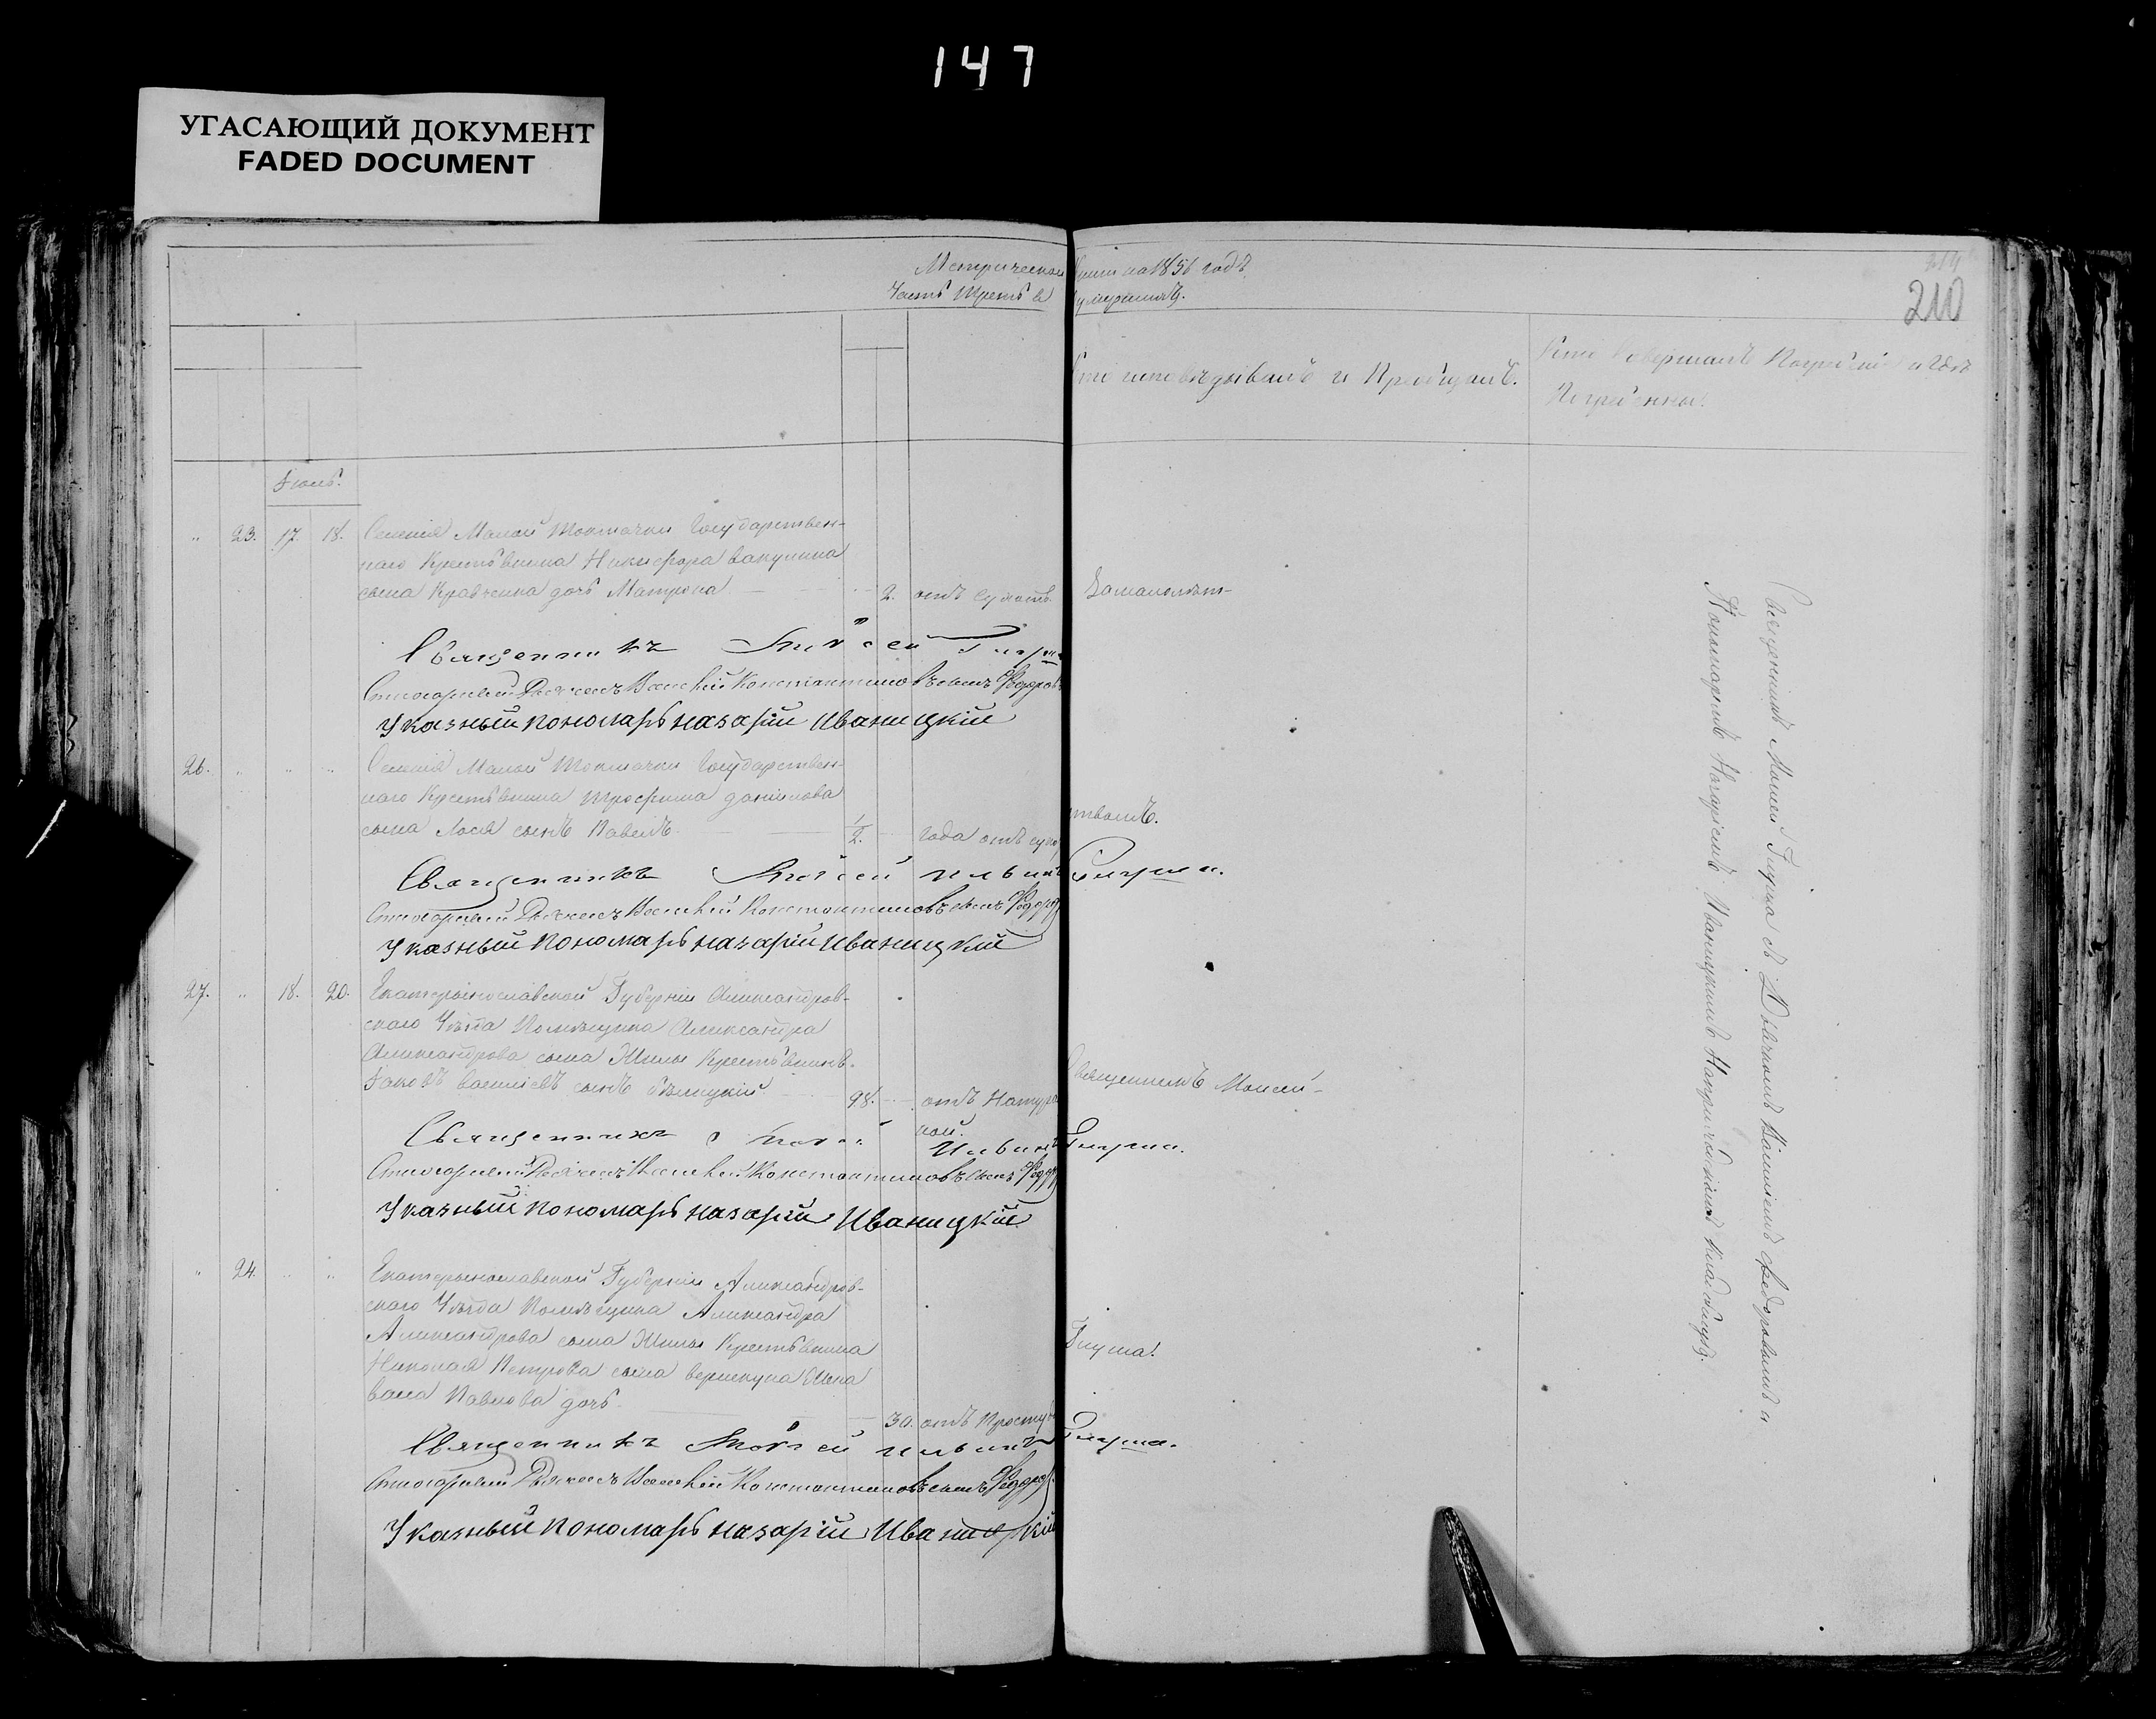 147
УГАСАЮЩИЙ ДОКУМЕНТ
FADED DOCUMENT
Метрической книги на 1856 годъ.
Часть Третья умершихъ.
210
Кто исповѣдывалъ и Пріобщалъ.
Кто совершалъ Погребеніе и гдѣ
Погребенны.
Іюль.
23. 17. 18. Селенія Малой Токмачки Государствен-
наго Крестьянина Никифора Вакулина
сына Кравченка дочь Матрона 2. отъ
Священникъ Моѵсей Гнуша
Стихарный Дьячекъ Василій Константиновъ сынъ Федоров
Указный пономарь назарій Иваницкій
26. Селенія Малой Токмачки Государствен-
наго Крестьянина Трофима Данилова
сына Лося сынъ Павелъ 1/2. года отъ
Священникъ Моѵсей Ильинъ Гнуша.
Стихарный Дьячекъ Василій Константиновъ сынъ Федоров
Указный пономарь назарій Иваницкій
27. 18. 20. Екатеринославской Губерніи Александров-
скаго Уѣзда Помѣщика Александра
Александрова сына Шилы Крестьянинъ
Іаковъ Василіевъ сынъ 98. отъ Натураль
ной. Священникъ Моисей
Священникъ Ильинъ Гнуша.
Стихарный Дьячекъ Василій Константиновъ сынъ Федоров
Указный пономарь назарій Иваницкій
24. Екатеринославской Губерніи Александров-
скаго Уѣзда Помѣщика Александра
Александрова сына Шилы Крестьянина
Николая Петрова сына жена
Павлова дочь 30. отъ Простуды
Гнуша.
Священникъ Моѵсей Ильинъ Гнуша.
Стихарный Дьячекъ Василій Константиновъ сынъ Федоров
Указный пономарь назарій Иваницкій
Священникъ Моисей Гнуша съ Дьячкомъ Василіемъ Федоровымъ и
Пономаремъ Назаріемъ Иваницкимъ На приходскомъ кладбищѣ.